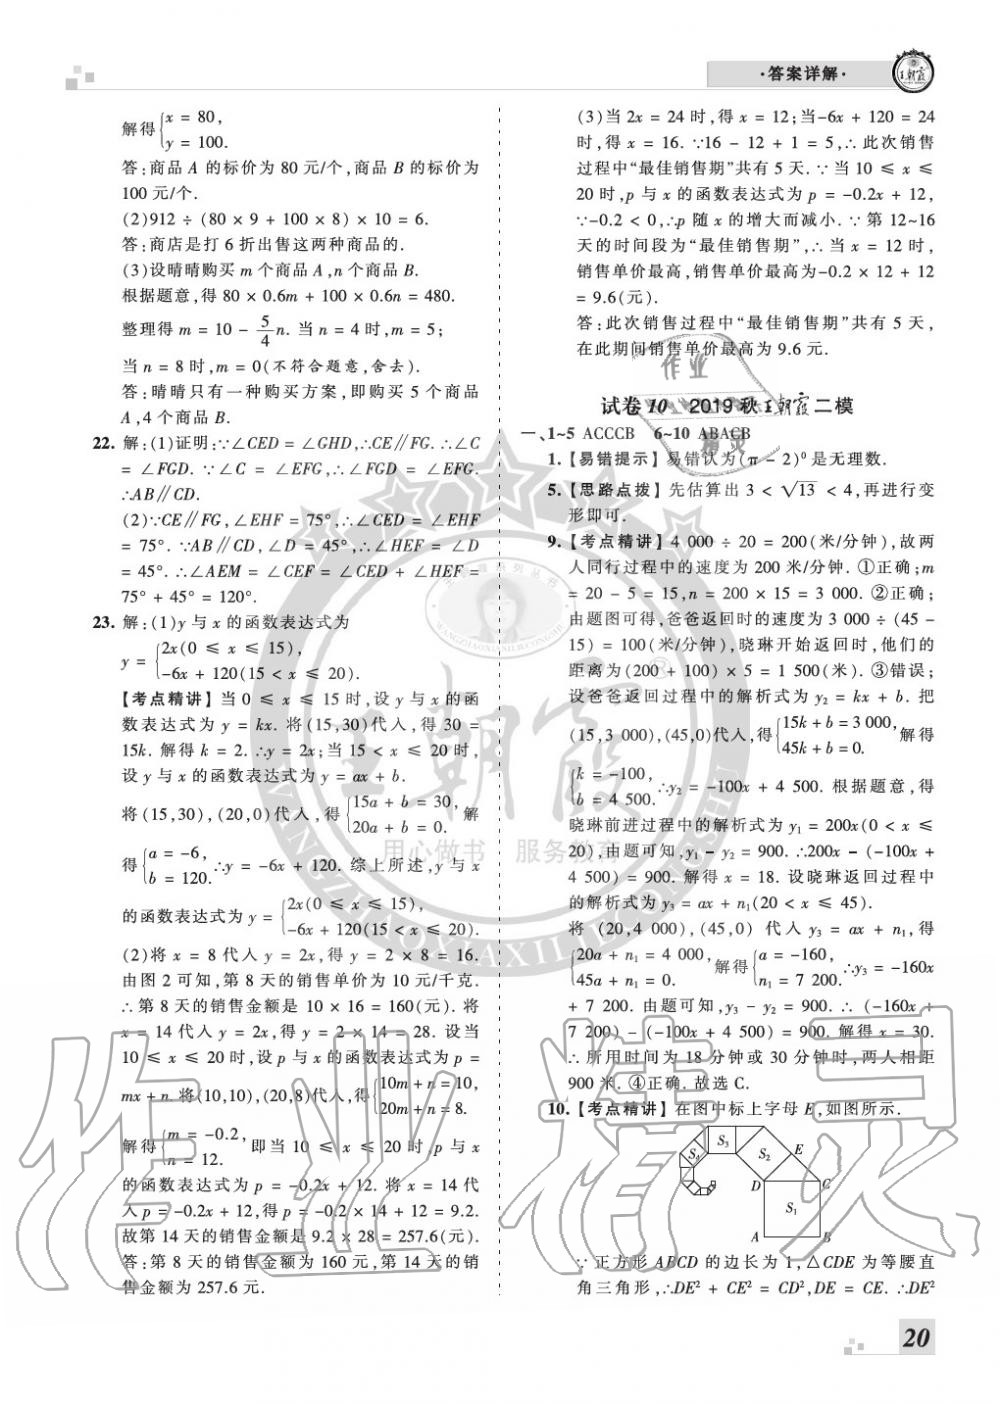 ·答案详解·
王朝霞
解得{x = 80,
y = 100.
答:商品 A 的标价为 80 元/个,商品 B 的标价为
100 元/个.
(2)912 ÷ (80 × 9 + 100 × 8) × 10 = 6.
答:商店是打 6 折出售这两种商品的.
(3)设晴晴购买 m 个商品 A,n 个商品 B.
根据题意,得 80 × 0.6m + 100 × 0.6n = 480.
整理得 m = 10 - 5/4 n. 当 n = 4 时,m = 5;
当 n = 8 时,m = 0(不符合题意,舍去).
答:晴晴只有一种购买方案,即购买 5 个商品
A,4 个商品 B.
22. 解:(1)证明:∵∠CED = ∠GHD,∴CE∥FG. ∴∠C
= ∠FGD. ∵∠C = ∠EFG,∴∠FGD = ∠EFG.
∴AB∥CD.
(2)∵CE∥FG,∠EHF = 75°,∴∠CED = ∠EHF
= 75°. ∵AB∥CD,∠D = 45°,∴∠HEF = ∠D
= 45°. ∴∠AEM = ∠CEF = ∠CED + ∠HEF =
75° + 45° = 120°.
23. 解:(1)y 与 x 的函数表达式为
y = {2x(0 ≤ x ≤ 15),
-6x + 120(15 < x ≤ 20).
【考点精讲】当 0 ≤ x ≤ 15 时,设 y 与 x 的函
数表达式为 y = kx. 将(15,30)代入,得 30 =
15k. 解得 k = 2. ∴y = 2x;当 15 < x ≤ 20 时,
设 y 与 x 的函数表达式为 y = ax + b.
将(15,30),(20,0)代入,得{15a + b = 30,
20a + b = 0. 解
得{a = -6,
b = 120. ∴y = -6x + 120. 综上所述,y 与 x
的函数表达式为 y = {2x(0 ≤ x ≤ 15),
-6x + 120(15 < x ≤ 20).
(2)将 x = 8 代入 y = 2x,得 y = 2 × 8 = 16.
由图 2 可知,第 8 天的销售单价为 10 元/千克.
∴第 8 天的销售金额是 10 × 16 = 160(元). 将
x = 14 代入 y = 2x,得 y = 2 × 14 = 28. 设当
10 ≤ x ≤ 20 时,设 p 与 x 的函数表达式为 p =
mx + n. 将(10,10),(20,8)代入,得{10m + n = 10,
20m + n = 8.
解得{m = -0.2,
n = 12. 即当 10 ≤ x ≤ 20 时,p 与 x
的函数表达式为 p = -0.2x + 12. 将 x = 14 代
入 p = -0.2x + 12,得 p = -0.2 × 14 + 12 = 9.2.
故第 14 天的销售金额是 9.2 × 28 = 257.6(元).
答:第 8 天的销售金额为 160 元,第 14 天的销
售金额为 257.6 元.
(3)当 2x = 24 时,得 x = 12;当-6x + 120 = 24
时,得 x = 16. ∵16 - 12 + 1 = 5,∴此次销售
过程中“最佳销售期”共有 5 天. ∵当 10 ≤ x ≤
20 时,p 与 x 的函数表达式为 p = -0.2x + 12,
∵-0.2 < 0,∴p 随 x 的增大而减小. ∵第 12~16
天的时间段为“最佳销售期”,∴当 x = 12 时,
销售单价最高,销售单价最高为-0.2 × 12 + 12
= 9.6(元).
答:此次销售过程中“最佳销售期”共有 5 天,
在此期间销售单价最高为 9.6 元.
试卷 10 2019 秋王朝霞二模
一、1~5 ACCCB 6~10 ABACB
1.【易错提示】易错认为(π - 2)⁰ 是无理数.
5.【思路点拨】先估算出 3 < √13 < 4,再进行变
形即可.
9.【考点精讲】4 000 ÷ 20 = 200(米/分钟),故两
人同行过程中的速度为 200 米/分钟. ①正确;m
= 20 - 5 = 15,n = 200 × 15 = 3 000. ②正确;
由题图可得,爸爸返回时的速度为 3 000 ÷ (45 -
15) = 100(米/分钟),晓琳开始返回时,他们的
距离为(200 + 100) × 5 = 1 500(米). ③错误;
设爸爸返回过程中的解析式为 y₂ = kx + b. 把
(15,3 000),(45,0)代入,得{15k + b = 3 000,
45k + b = 0. 解得
{k = -100,
b = 4 500. ∴y₂ = -100x + 4 500. 根据题意,得
晓琳前进过程中的解析式为 y₁ = 200x(0 < x ≤
20),由题可知,y₁ - y₂ = 900. ∴200x - (-100x +
4 500) = 900. 解得 x = 18. 设晓琳返回过程中
的解析式为 y₃ = ax + n₁(20 < x ≤ 45).
将 (20,4 000),(45,0) 代入 y₃ = ax + n₁,得
{20a + n₁ = 4 000,
45a + n₁ = 0. 解得{a = -160,
n₁ = 7 200. ∴y₃ = -160x
+ 7 200. 由题可知,y₃ - y₂ = 900. ∴ (-160x +
7 200) - (-100x + 4 500) = 900. 解得 x = 30.
∴所用时间为 18 分钟或 30 分钟时,两人相距
900 米. ④正确. 故选 C.
10.【考点精讲】在图中标上字母 E,如图所示.
S₃
S₄
S₂
E
D
C
S₁
A
B
∵正方形 ABCD 的边长为 1,△CDE 为等腰直
角三角形,∴DE² + CE² = CD²,DE = CE. ∴DE²
20
王朝霞
用心做书 服务教育
作业精灵
作业精灵